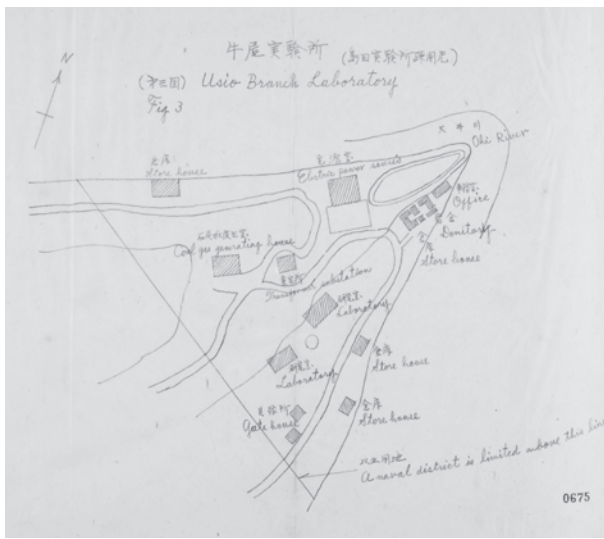 牛尾実験所
(第三図) Usio Branch Laboratory
Fig 3
N
大井川
Ohi River
倉庫
Store house
電源室
Electric power source
Office
Domitory
倉庫
Store house
Coal gas generating house
変電所
Transformer substation
研究室
Laboratory
研究室
Laboratory
倉庫
Store house
Gate house
倉庫
Store house
A naval district is limited above this line
0675